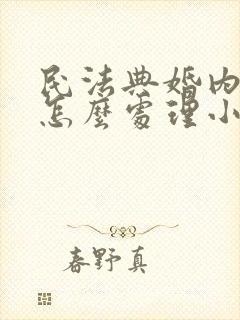 民法典婚内
怎麼處理小
春野真